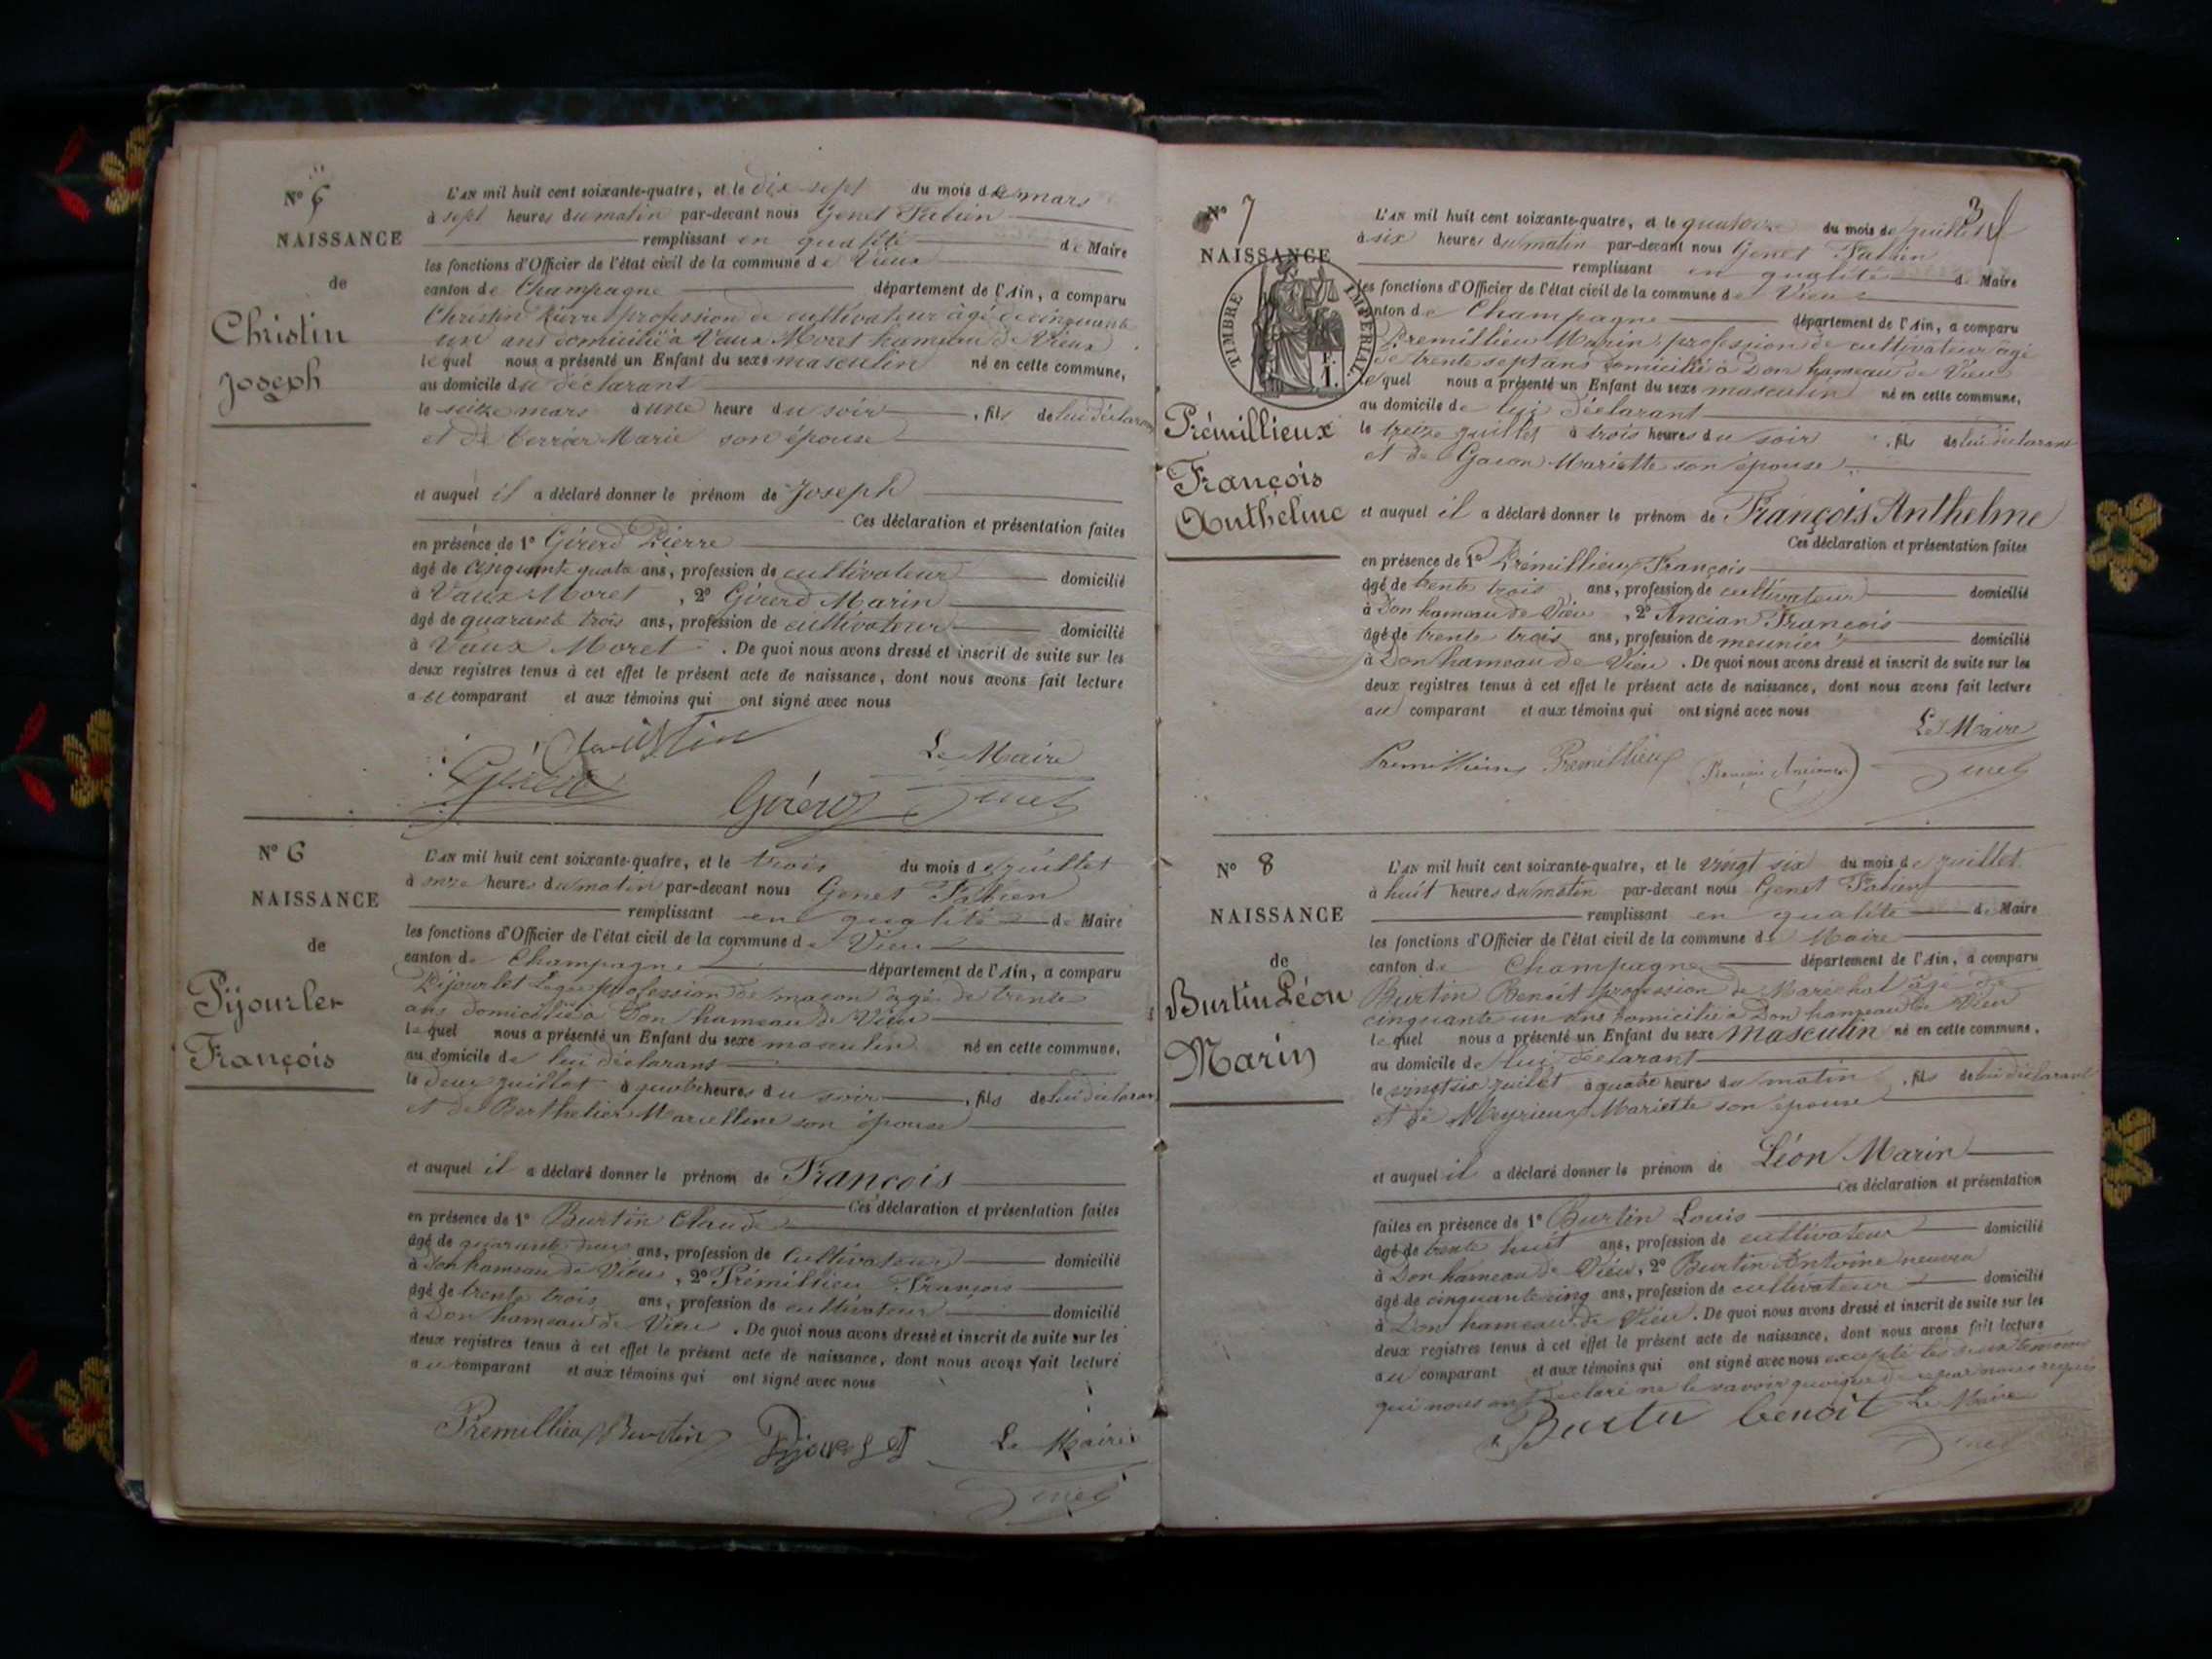 N° 5
NAISSANCE
de
Christin
Joseph
L'AN mil huit cent soixante-quatre, et le dix sept du mois de mars
à sept heures du matin par-devant nous Genet Fabien
remplissant en qualité de Maire
les fonctions d'Officier de l'état civil de la commune de Vieux
canton de Champagne département de l'Ain, a comparu
Christin Pierre profession de cultivateur âgé de cinquante
un ans domicilié à Vaux Moret hameau de Vieux
lequel nous a présenté un Enfant du sexe masculin né en cette commune,
au domicile du déclarant
le seize mars à une heure du soir, fils de lui déclarant
et de Terrier Marie son épouse
et auquel il a déclaré donner le prénom de Joseph
Ces déclaration et présentation faites
en présence de 1° Girerd Pierre
âgé de cinquante quatre ans, profession de cultivateur domicilié
à Vaux Moret, 2° Girerd Marin
âgé de quarante trois ans, profession de cultivateur domicilié
à Vaux Moret. De quoi nous avons dressé et inscrit de suite sur les
deux registres tenus à cet effet le présent acte de naissance, dont nous avons fait lecture
au comparant et aux témoins qui ont signé avec nous
Christin
Le Maire
Girerd Girerd Genet
N° 6
NAISSANCE
de
Pijourlet
François
L'AN mil huit cent soixante-quatre, et le trois du mois de juillet
à onze heures du matin par-devant nous Genet Fabien
remplissant en qualité de Maire
les fonctions d'Officier de l'état civil de la commune de Vieu
canton de Champagne département de l'Ain, a comparu
Pijourlet profession de maçon âgé de trente
ans domicilié à Don hameau de Vieu
lequel nous a présenté un Enfant du sexe masculin né en cette commune,
au domicile de lui déclarant
le deux juillet à quatre heures du soir, fils de lui déclarant
et de Berthelier Marcelline son épouse
et auquel il a déclaré donner le prénom de François
Ces déclaration et présentation faites
en présence de 1° Burtin Claude
âgé de quarante deux ans, profession de cultivateur domicilié
à Don hameau de Vieu, 2° Prémillieu François
âgé de trente trois ans, profession de cultivateur domicilié
à Don hameau de Vieu. De quoi nous avons dressé et inscrit de suite sur les
deux registres tenus à cet effet le présent acte de naissance, dont nous avons fait lecture
au comparant et aux témoins qui ont signé avec nous
Premillieu Burtin Le Maire
Genet
3
N° 7
NAISSANCE
TIMBRE IMPERIAL
F.
1.
Prémillieux
François
Anthelme
L'AN mil huit cent soixante-quatre, et le quatorze du mois de juillet
à six heures du matin par-devant nous Genet Fabien
remplissant en qualité de Maire
les fonctions d'Officier de l'état civil de la commune de Vieu
canton de Champagne département de l'Ain, a comparu
Prémillieu Marin, profession de cultivateur âgé
de trente sept ans domicilié à Don hameau de Vieu
lequel nous a présenté un Enfant du sexe masculin né en cette commune,
au domicile de lui déclarant
le treize juillet à trois heures du soir, fils de lui déclarant
et de Gacon Mariette son épouse
et auquel il a déclaré donner le prénom de François Anthelme
Ces déclaration et présentation faites
en présence de 1° Prémillieux François
âgé de trente trois ans, profession de cultivateur domicilié
à Don hameau de Vieu, 2° Ancian François
âgé de trente trois ans, profession de meunier domicilié
à Don hameau de Vieu. De quoi nous avons dressé et inscrit de suite sur les
deux registres tenus à cet effet le présent acte de naissance, dont nous avons fait lecture
au comparant et aux témoins qui ont signé avec nous
Le Maire
Premillieux Premillieux Genet
N° 8
NAISSANCE
de
Burtin Léon
Marin
L'AN mil huit cent soixante-quatre, et le vingt six du mois de juillet
à huit heures du matin par-devant nous Genet Fabien
remplissant en qualité de Maire
les fonctions d'Officier de l'état civil de la commune de Maire
canton de Champagne département de l'Ain, a comparu
Burtin Benoît profession de Maréchal âgé de
cinquante un ans domicilié à Don hameau de Vieu
lequel nous a présenté un Enfant du sexe masculin né en cette commune,
au domicile de lui déclarant
le vingt six juillet à quatre heures du matin, fils de lui déclarant
et de Meyrieux Mariette son épouse
et auquel il a déclaré donner le prénom de Léon Marin
Ces déclaration et présentation
faites en présence de 1° Burtin Louis
âgé de trente huit ans, profession de cultivateur domicilié
à Don hameau de Vieu, 2° Burtin Antoine neveu
âgé de cinquante cinq ans, profession de cultivateur domicilié
à Don hameau de Vieu. De quoi nous avons dressé et inscrit de suite sur les
deux registres tenus à cet effet le présent acte de naissance, dont nous avons fait lecture
au comparant et aux témoins qui ont signé avec nous excepté les deux témoins
qui nous ont déclaré ne le savoir quoique de ce par nous requis
Burtin benoit Le Maire
Genet